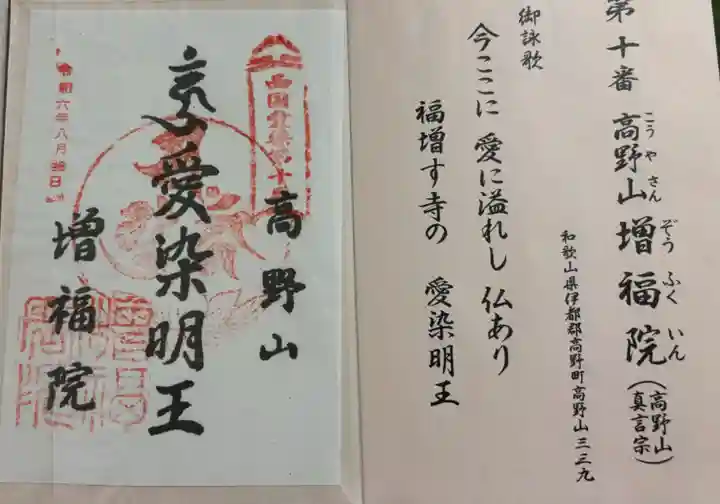 第十番 高野山 増福院（高野山真言宗）
こうやさん ぞうふくいん
和歌山県伊都郡高野町高野山三三九
御詠歌
今ここに 愛に溢れし 仏あり
福増す寺の 愛染明王
高野山
愛染明王
増福院
六年八月